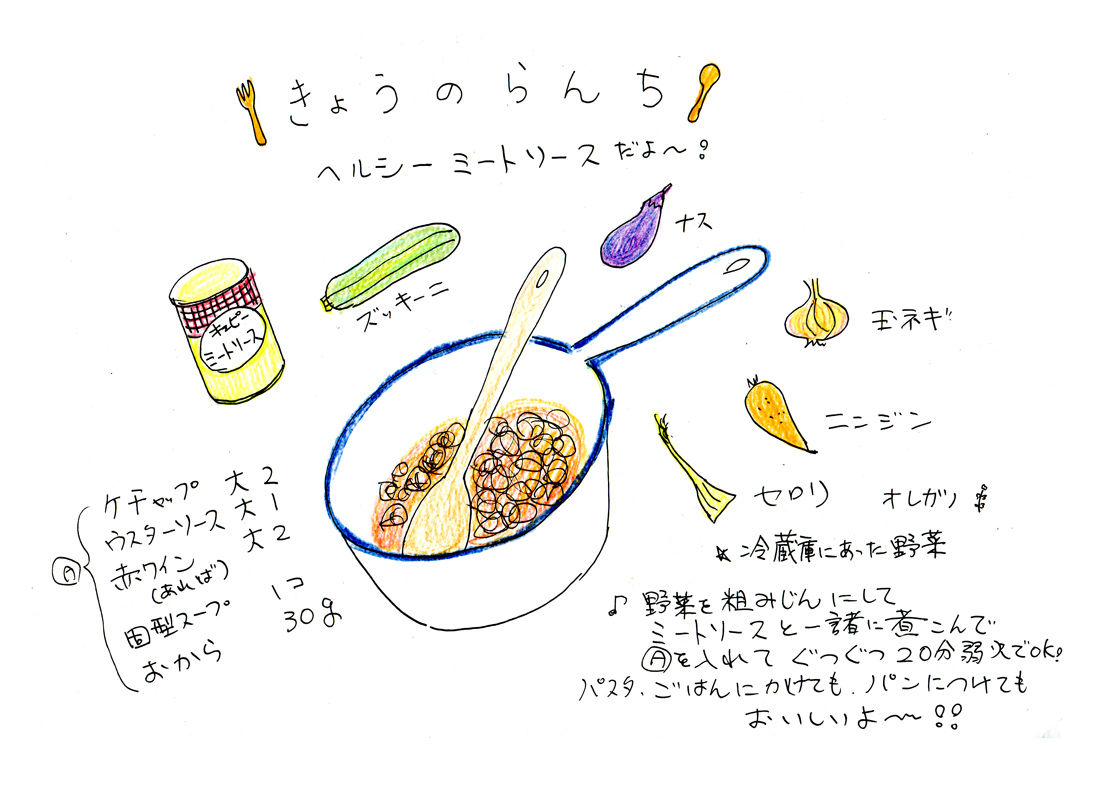 きょうのらんち
ヘルシーミートソースだよ〜!
ナス
ズッキーニ
キューピー
ミートソース
玉ネギ
ニンジン
セロリ
オレガノ
★冷蔵庫にあった野菜
Ⓐ
ケチャップ 大2
ウスターソース 大1
赤ワイン 大2
(あれば)
固型スープ 1コ
おから 30g
♪ 野菜を粗みじんにして
ミートソースと一諸に煮こんで
Ⓐを入れて ぐつぐつ 20分弱火でOK!
パスタ、ごはんにかけても、パンにつけても
おいしいよ〜!!